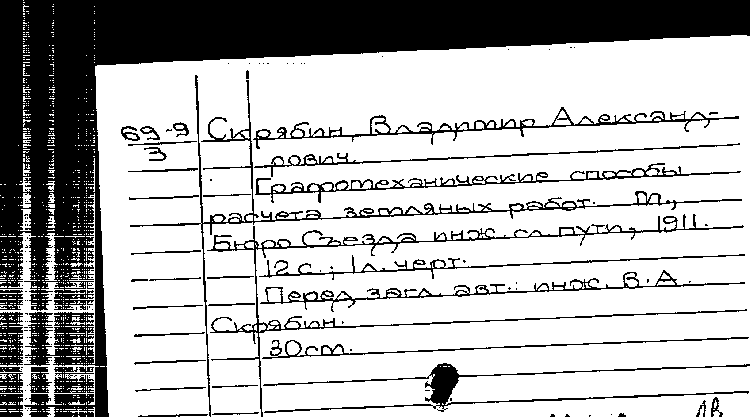 69-9
3
Скрябин, Владимир Александ-
рович.
Графотехнические способы
расчета земляных работ. М.,
Бюро Съезда инж. сл. пути, 1911.
12 с.; 1 л. черт.
Перед загл. авт.: инж. В. А.
Скрябин.
30 cm.